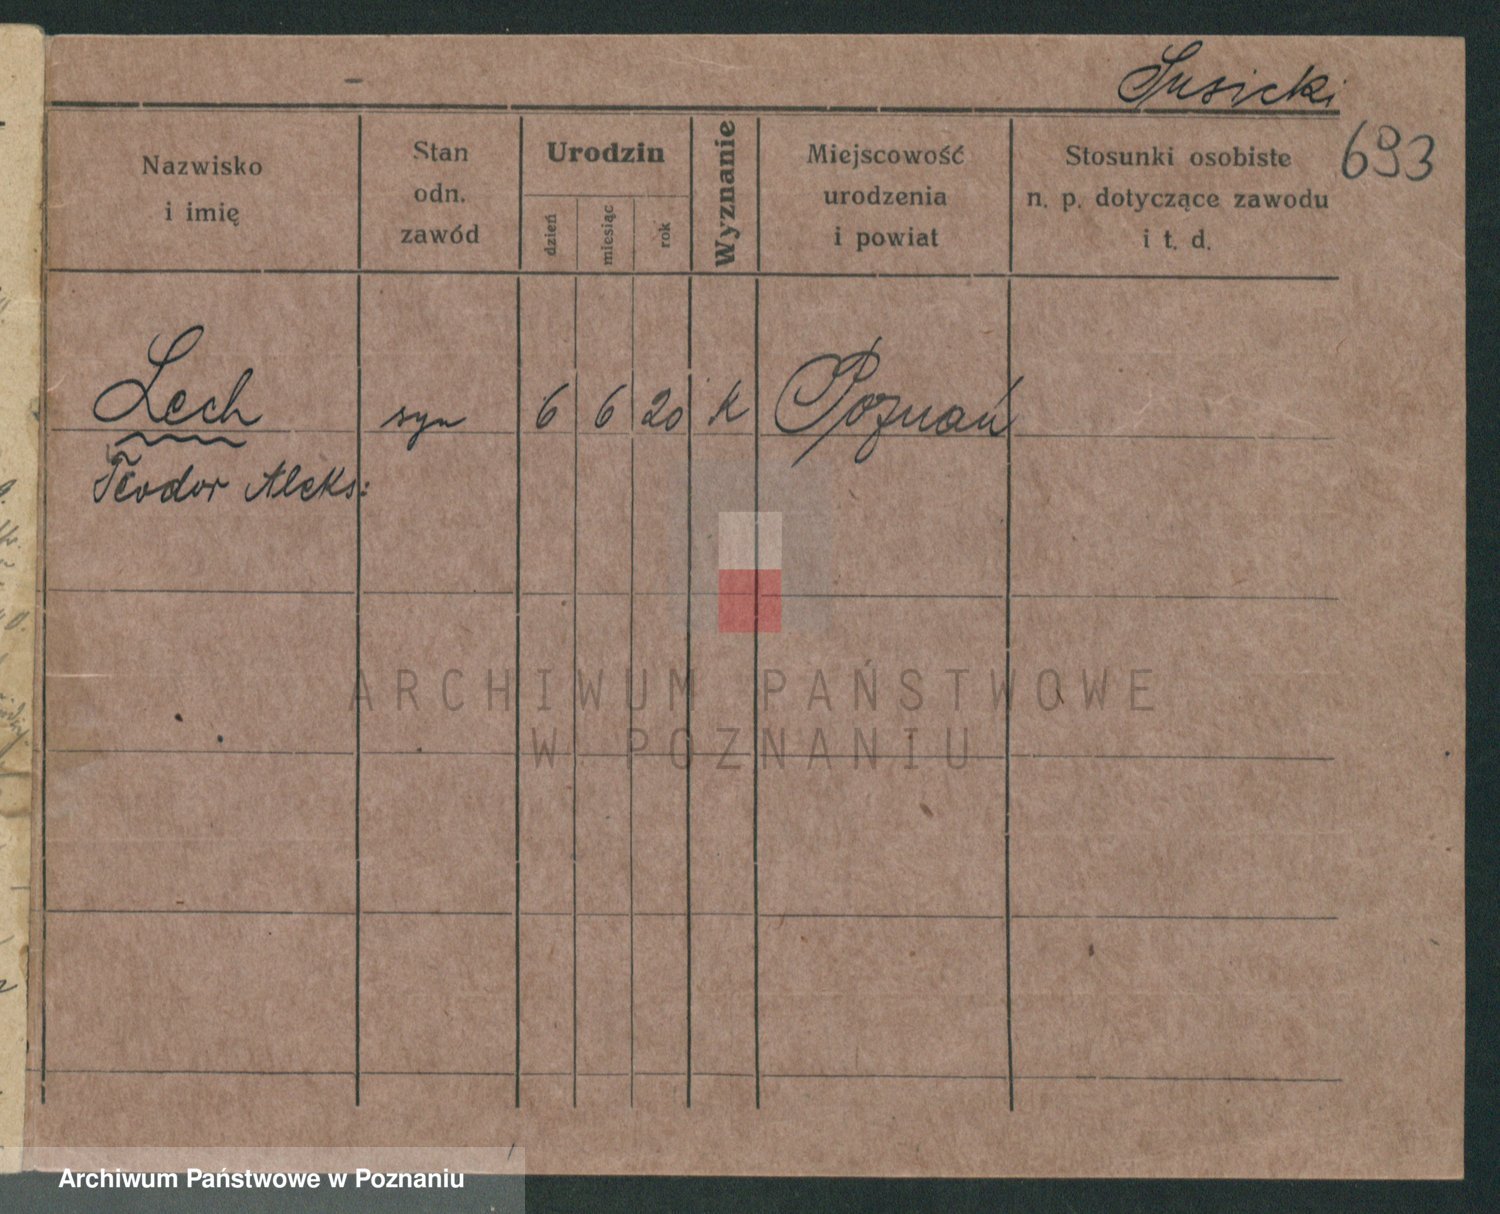 Susicki
693
Nazwisko
i imię
Stan
odn.
zawód
Urodzin
dzień
miesiąc
rok
Wyznanie
Miejscowość
urodzenia
i powiat
Stosunki osobiste
n. p. dotyczące zawodu
i t. d.
Lech syn 6 6 20 K Poznań
Teodor Aleks:
ARCHIWUM PAŃSTWOWE
W POZNANIU
Archiwum Państwowe w Poznaniu